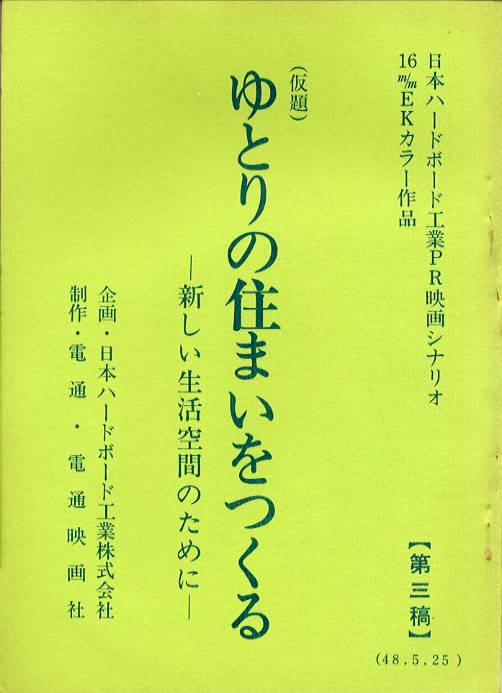 日本ハードボード工業PR映画シナリオ
16m/mEKカラー作品
【第三稿】
(48.5.25)
(仮題)
ゆとりの住まいをつくる
―新しい生活空間のために―
企画・日本ハードボード工業株式会社
制作・電通・電通映画社